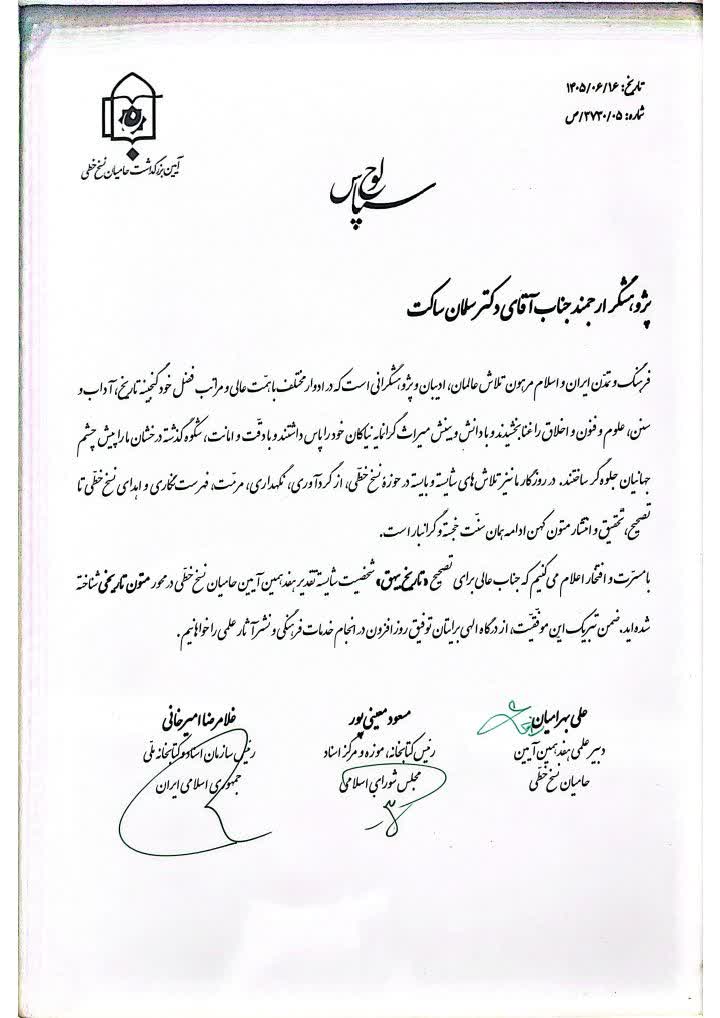 تاریخ: ۱۴۰۵/۰۶/۱۶
شماره: ۲۷۳۰/۰۵/ص
آیین بزرگداشت حامیان نسخ خطی
لوح سپاس
پژوهشگر ارجمند جناب آقای دکتر سلمان ساکت
فرهنگ و تمدن ایران و اسلام مرهون تلاش عالمان، ادیبان و پژوهشگرانی است که در ادوار مختلف با همّت عالی و مراتب فضل خود گنجینه تاریخ، آداب و
سنن، علوم و فنون و اخلاق را غنا بخشیدند و با دانش و بینش میراث گرانمایه نیاکان خود را پاس داشتند و با دقّت و امانت، شکوه گذشته درخشان ما را پیش چشم
جهانیان جلوه‌گر ساختند. در روزگار ما نیز تلاش‌های شایسته و بایسته در حوزۀ نسخ خطّی، از گردآوری، نگهداری، مرمّت، فهرست‌نگاری و اهدای نسخ خطّی تا
تصحیح، تحقیق و انتشار متون کهن ادامه همان سنّت خجسته و گرانبار است.
با مسرّت و افتخار اعلام می‌کنیم که جناب عالی برای تصحیح «تاریخ بیهق» شخصیت شایسته تقدیر هفدهمین آیین حامیان نسخ خطّی در محور متون تاریخی شناخته
شده‌اید. ضمن تبریک این موفّقیّت، از درگاه الهی برایتان توفیق روزافزون در انجام خدمات فرهنگی و نشر آثار علمی را خواهانیم.
علی بهرامیان
دبیر علمی هفدهمین آیین
حامیان نسخ خطّی
مسعود معینی‌پور
رئیس کتابخانه، موزه و مرکز اسناد
مجلس شورای اسلامی
غلامرضا امیرخانی
رئیس سازمان اسناد و کتابخانه ملّی
جمهوری اسلامی ایران